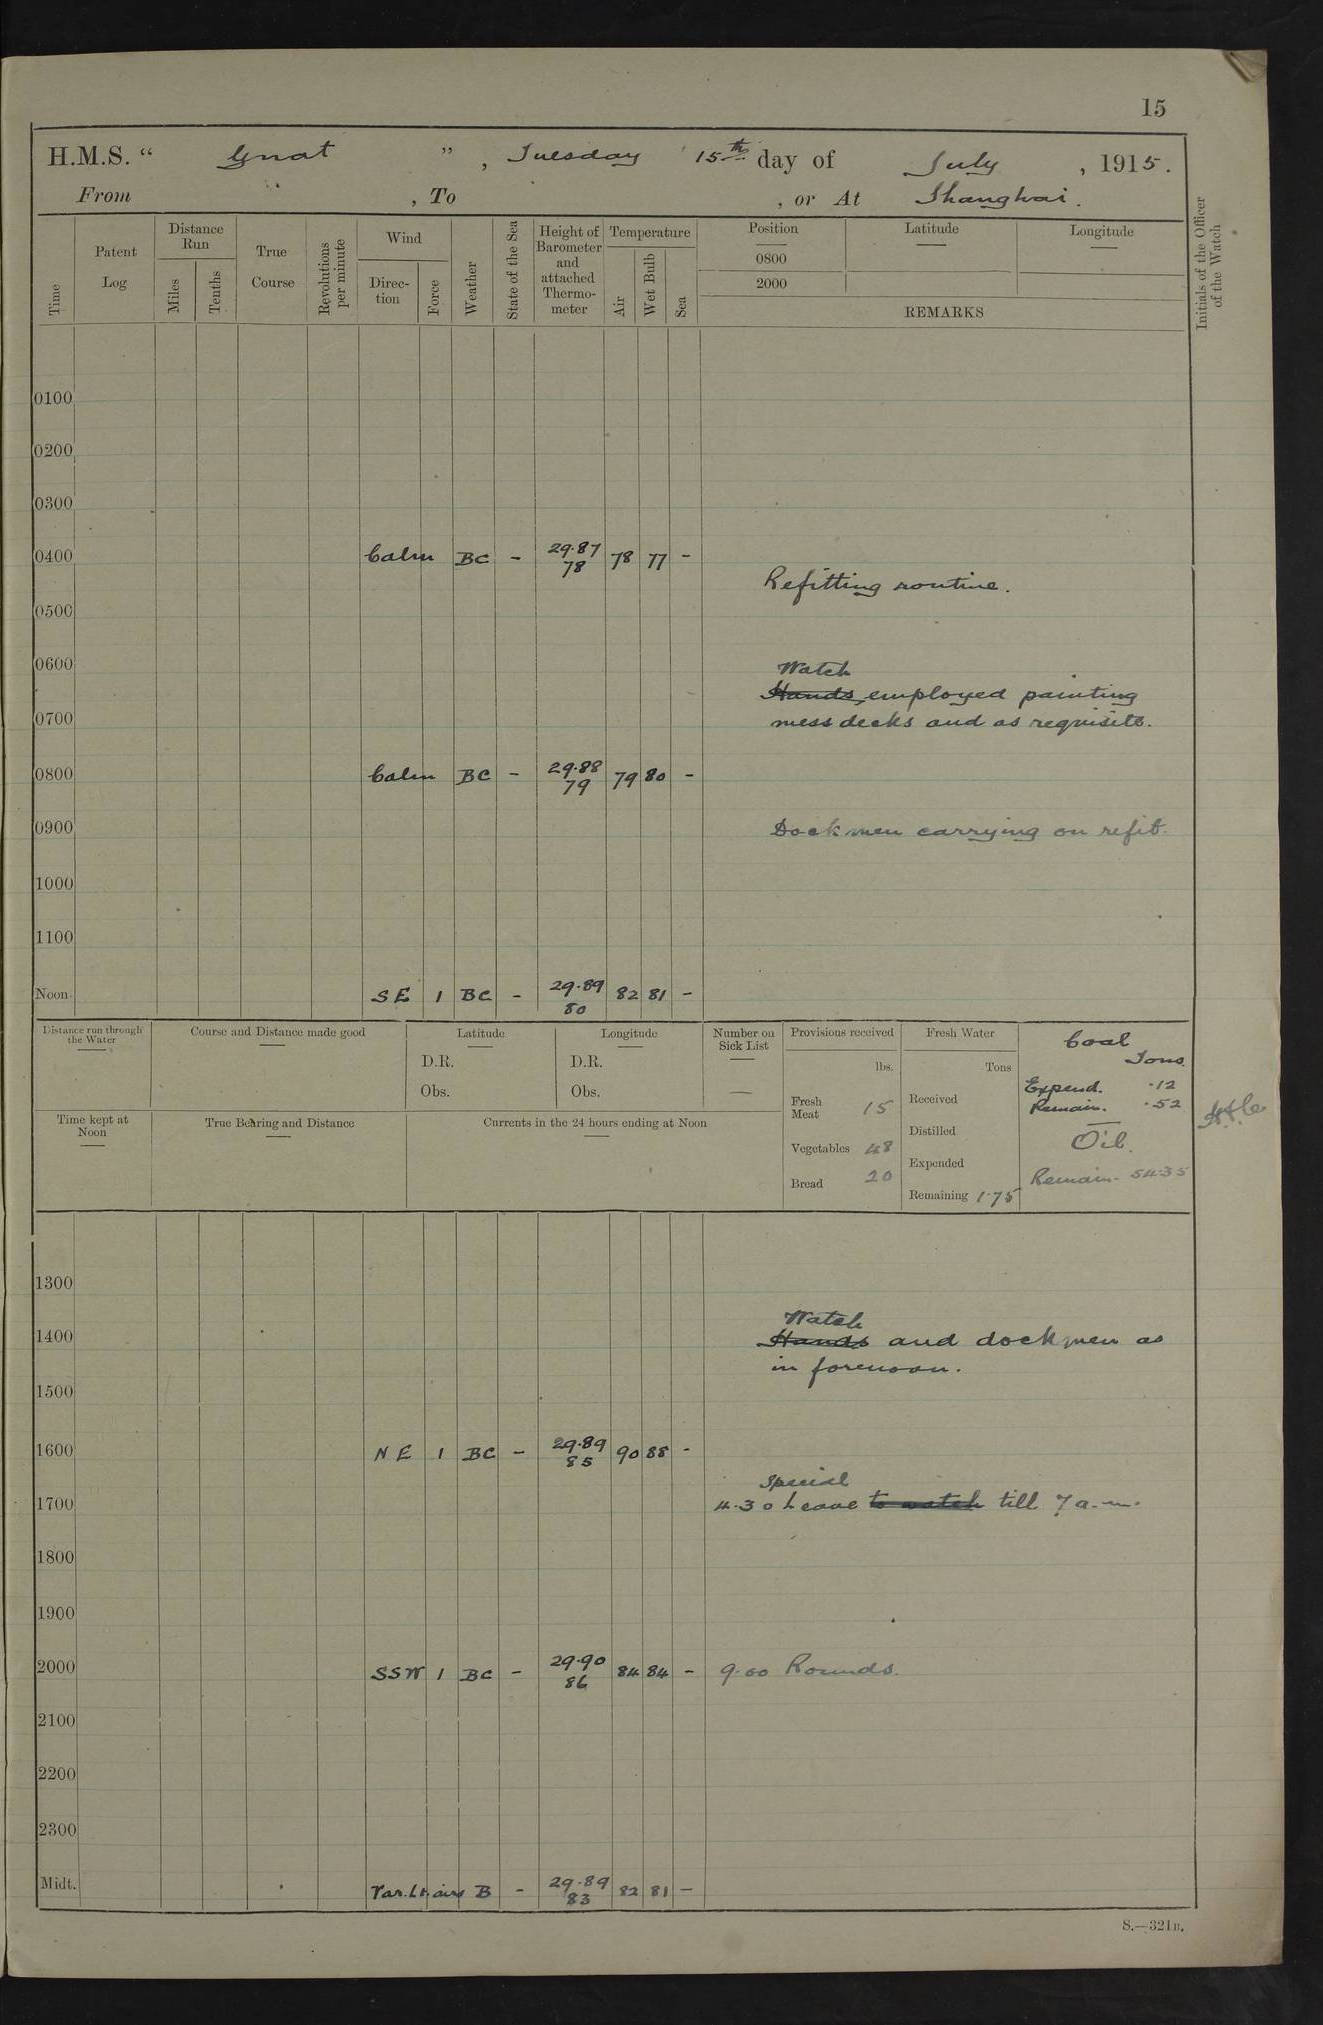 15
H.M.S. “ Gnat ” , Tuesday 15th day of July , 1915.
From , To , or At Shanghai.
Time
Patent Log
Distance Run
Miles
Tenths
True Course
Revolutions per minute
Wind
Direc-tion
Force
Weather
State of the Sea
Height of Barometer and attached Thermo-meter
Temperature
Air
Wet Bulb
Sea
Position
0800
2000
Latitude
Longitude
REMARKS
Initials of the Officer of the Watch
0100
0200
0300
0400 Calm BC - 29.87 78 78 77 -
Refitting routine.
0500
0600
Watch
Hands employed painting
0700
mess decks and as requisite.
0800 Calm BC - 29.88 79 79 80 -
0900 Dockmen carrying on refit.
1000
1100
Noon. SE 1 BC - 29.89 80 82 81 -
Distance run through the Water
Course and Distance made good
Latitude
D.R.
Obs.
Longitude
D.R.
Obs.
Number on Sick List
—
Provisions received
lbs.
Fresh Meat 15
Vegetables 48
Bread 20
Fresh Water
Tons
Received
Distilled
Expended
Remaining 1.75
Coal
Tons.
Expend. .12
Remain. .52
Oil.
Remain. 54.35
Time kept at Noon
True Bearing and Distance
Currents in the 24 hours ending at Noon
1300
Watch
1400 Hands and dockmen as
in forenoon.
1500
1600 NE 1 BC - 29.89 85 90 88 -
Special
1700 4.30 Leave to watch till 7 a.m.
1800
1900
2000 SSW 1 BC - 29.90 86 84 84 - 9.00 Rounds.
2100
2200
2300
Midt. Var. Lt. airs B - 29.89 83 82 81 -
S.—321B.